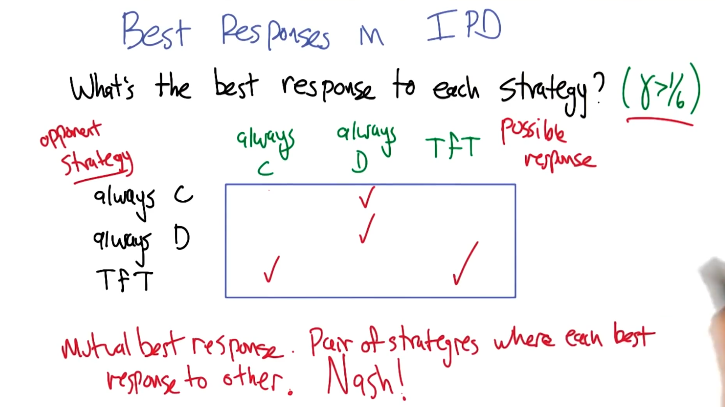 Best Responses in IPD
What's the best response to each strategy? (γ>1/6)
opponent strategy always C always D TfT possible response
always C ✓
always D ✓
TfT ✓ ✓
Mutual best response. Pair of strategies where each best
response to other. Nash!